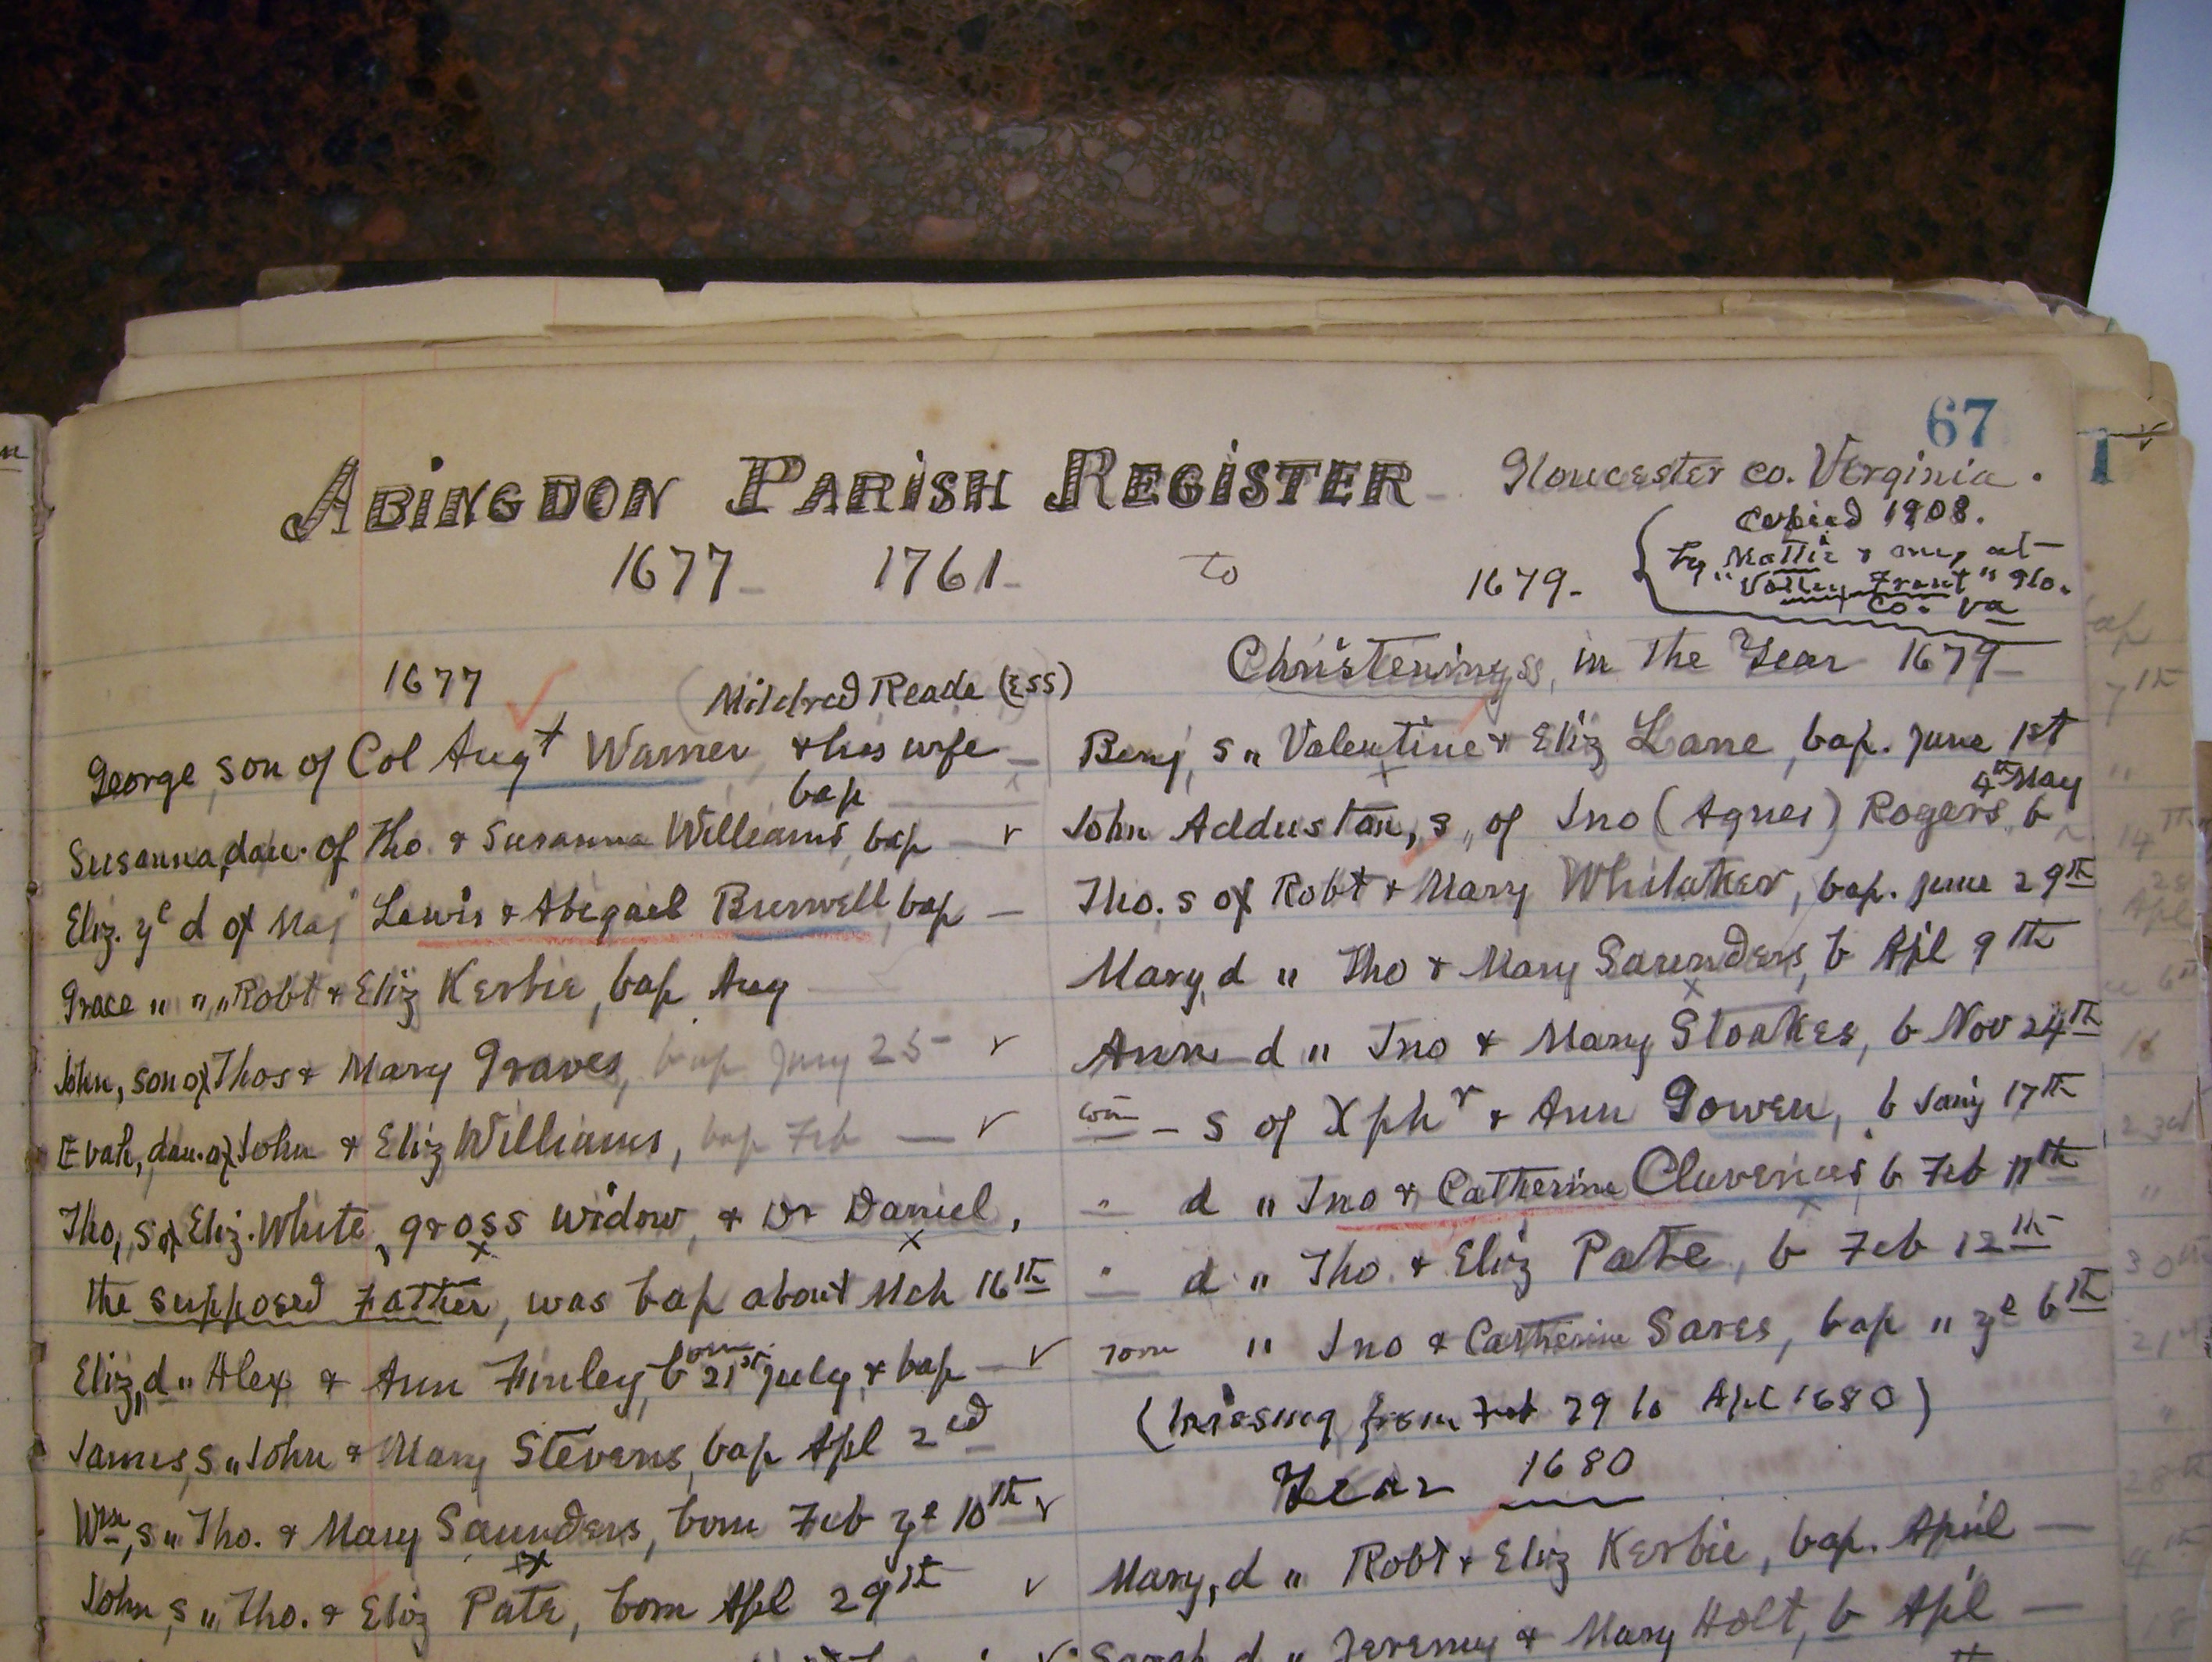 67
ABINGDON PARISH REGISTER Gloucester co. Virginia.
Copied 1908.
by Mattie & me, at
"Valley Front" Glo.
Co. Va
1677 1761 to 1679.
1677
Mildred Reade (ESS)
George, son of Col Augt Warner & his wife
bap
Susanna, dau. of Tho. & Susanna Williams, bap — v
Eliz. ye d of Maj Lewis & Abigael Burwell, bap —
Grace " " " Robt & Eliz Kerbie, bap Aug
John, son of Thos & Mary Graves, bap Jany 25 v
Evah, dau. of John & Eliz Williams, bap Feb — v
Tho, s of Eliz. White, gross widow, & Dr Daniel,
x x
the supposed Father, was bap about Mch 16th
Eliz, d " Alex & Ann Finley, born 21st July, & bap — v
James, s " John & Mary Stevens, bap Apl 2ed
Wm, s " Tho. & Mary Saunders, born Feb ye 10th v
x
John, s " Tho. & Eliz Pate, born Apl 29th v
Christenings, in the Year 1679
Benj, s " Valentine & Eliz Lane, bap. June 1st
x
4th May
John Adduston, s " of Jno (Agnes) Rogers, b
Tho. s of Robt & Mary Whitaker, bap. June 29th
Mary, d " Tho & Mary Saunders, b Apl 9th
x
Ann d " Jno & Mary Stoakes, b Nov 24th
Wm — s of Xphr & Ann Gowen, b Jany 17th
" d " Jno & Catherine Cluverius b Feb 11th
x
" d " Tho. & Eliz Pate, b Feb 12th
" Jno & Catherine Sares, bap " ye 6th
(missing from 79 to Apl 1680)
Year 1680
Mary, d " Robt & Eliz Kerbie, bap. April —
Sarah d " Jeremy & Mary Holt, b Apl —